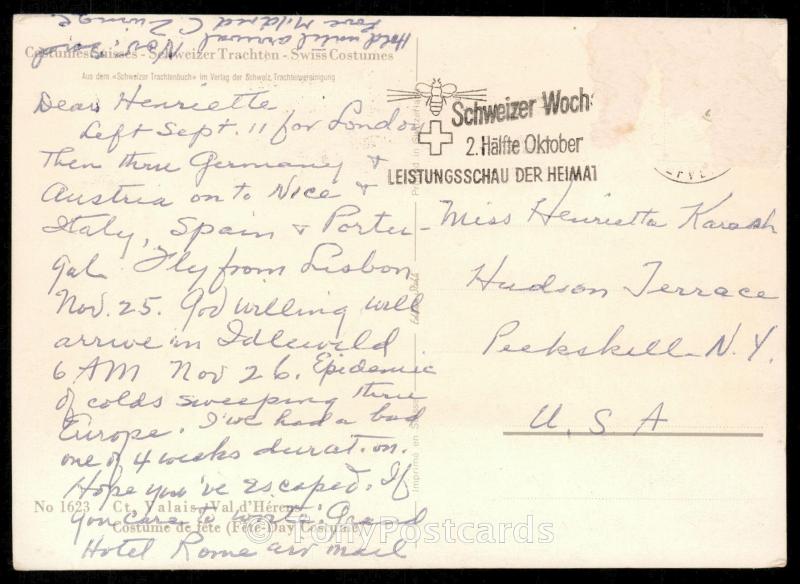 Costumes Suisses - Schweizer Trachten - Swiss Costumes
Aus dem «Schweizer Trachtenbuch» im Verlag der Schweiz. Trachtenvereinigung
Dear Henriette
Left Sept. 11 for London
Then thru Germany &
Austria on to Nice &
Italy, Spain & Portu-
gal. Fly from Lisbon
Nov. 25. God willing will
arrive in Idlewild
6 AM Nov 26. Epidemic
of colds sweeping thru
Europe. I've had a bad
one of 4 weeks duration.
Hope you've escaped. If
you care to write: Grand
Hotel Rome air mail
Hold until arrival
Love Mildred C
No 1623 Ct. Valais (Val d'Hérens)
Costume de fête (Fête-Day Costume)
Imprimé en Suisse
Printed in
Schweizer Woch
2. Hälfte Oktober
LEISTUNGSSCHAU DER HEIMAT
Miss Henrietta Karash
Hudson Terrace
Peekskill - N.Y.
U. S A
© TonyPostcards